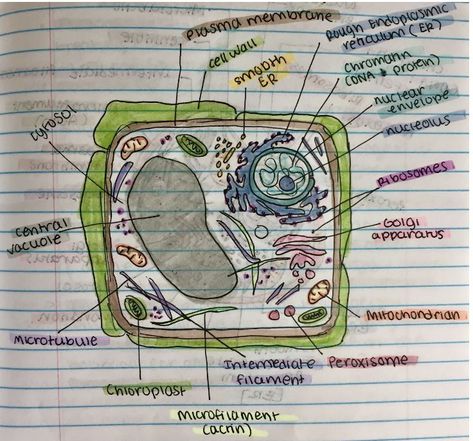 Plasma membrane
cell wall
smooth
ER
Rough Endoplasmic
reticulum (ER)
Chromatin
(DNA & protein)
nuclear
envelope
nucleolus
Ribosomes
Golgi
apparatus
Mitochondrian
Peroxisome
Intermediate
filament
Microfilament
(actin)
Chloroplast
Microtubule
central
vacuole
cytosol